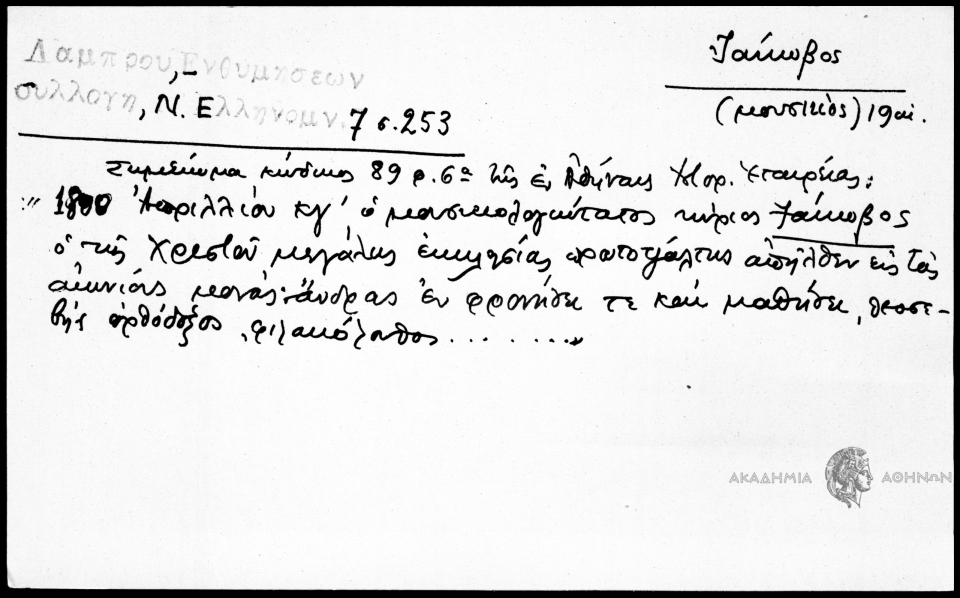 Λαμπρου Ενθυμήσεων
συλλογη, Ν. Ελληνομν. 7 σ. 253
Ἰάκωβος
(μουσικὸς) 19 αἰ.
Σημείωμα κώδικος 89 φ. 6α τῆς ἐν Ἀθήναις Ἱστορ. Ἑταιρείας:
" 1800 Ἀπριλλίου κγ' ὁ μουσικολογιώτατος κύριος Ἰάκωβος
ὁ τῆς Χριστοῦ μεγάλης ἐκκλησίας πρωτοψάλτης ἀπῆλθεν εἰς τὰς
αἰωνίους μονάς· ἄνδρας ἐν φρονήσει τε καὶ μαθήσει, θεοσε-
βὴς ὀρθόδοξος, φιλακόλουθος . . . . . . . "
ΑΚΑΔΗΜΙΑ ΑΘΗΝΩΝ